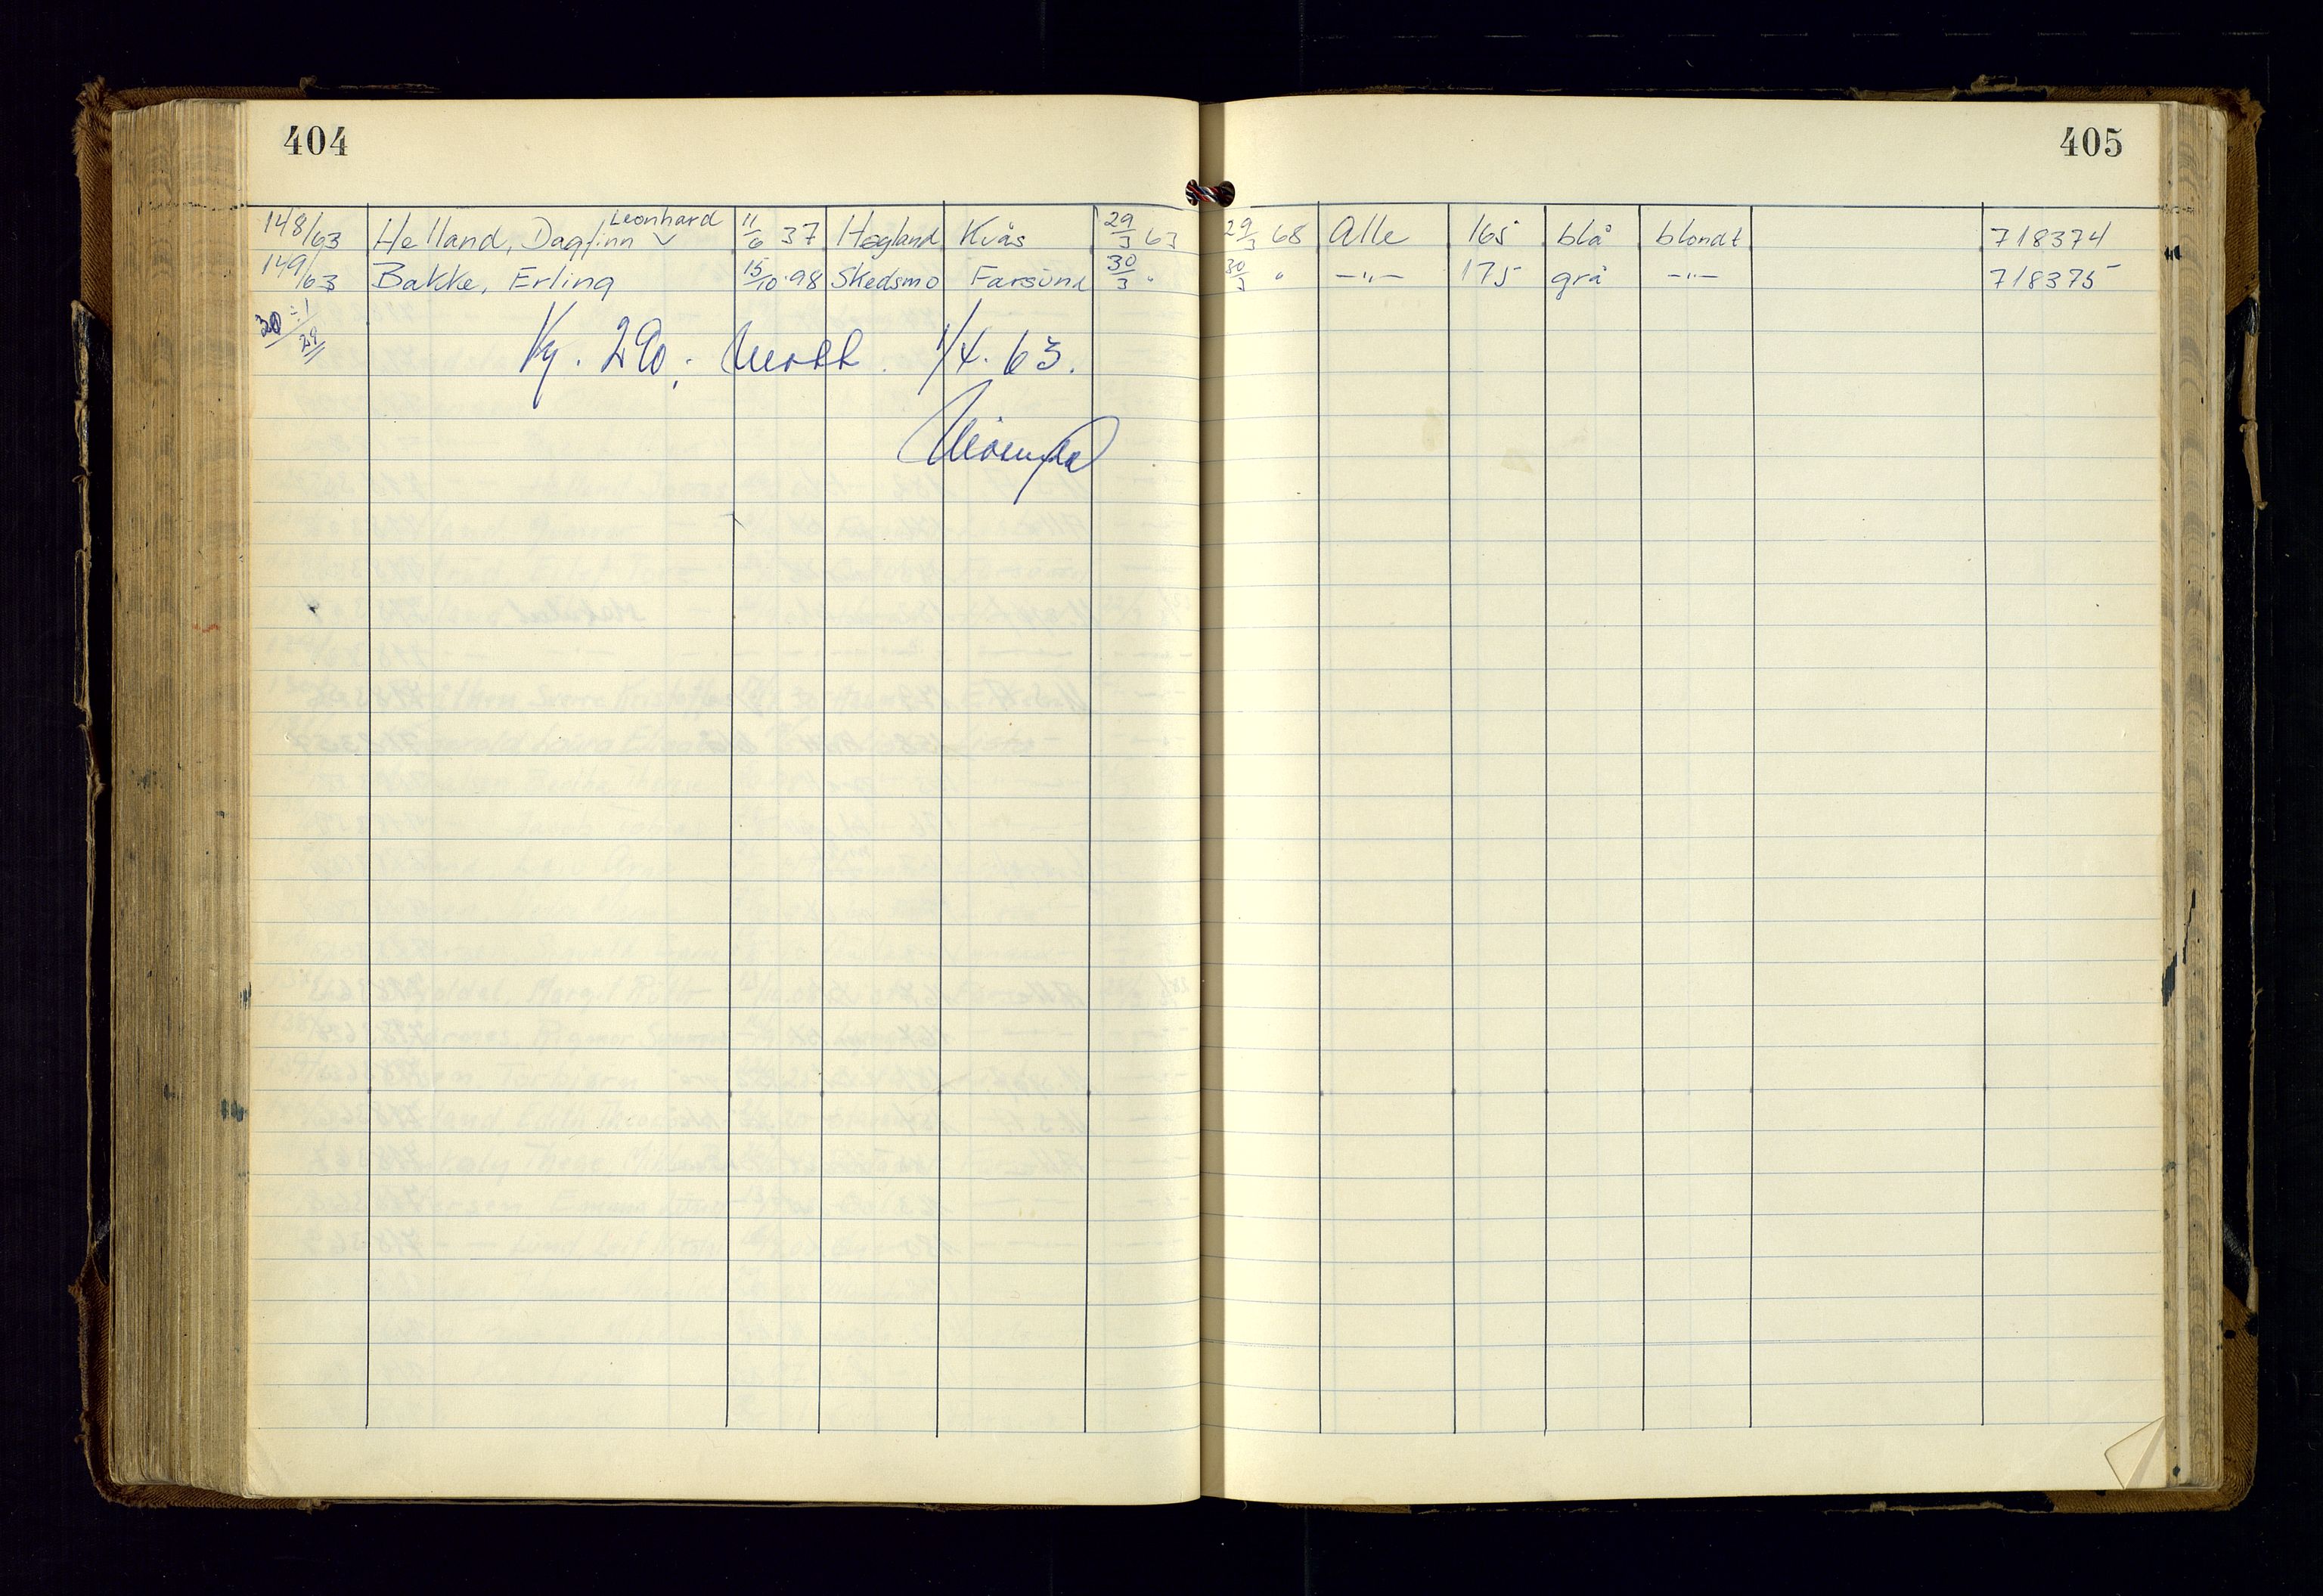 404
405
148/63 Helland, Dagfinn Leonhard 11/6 37 Hægland Kvås 29/3 63 29/3 68 Alle 165 blå blondt 718374
149/63 Bakke, Erling 15/10 98 Skedsmo Farsund 30/3 " 30/3 " —"— 175 grå —"— 718375
30 ÷ 1
29
290,- 1/4. 63.